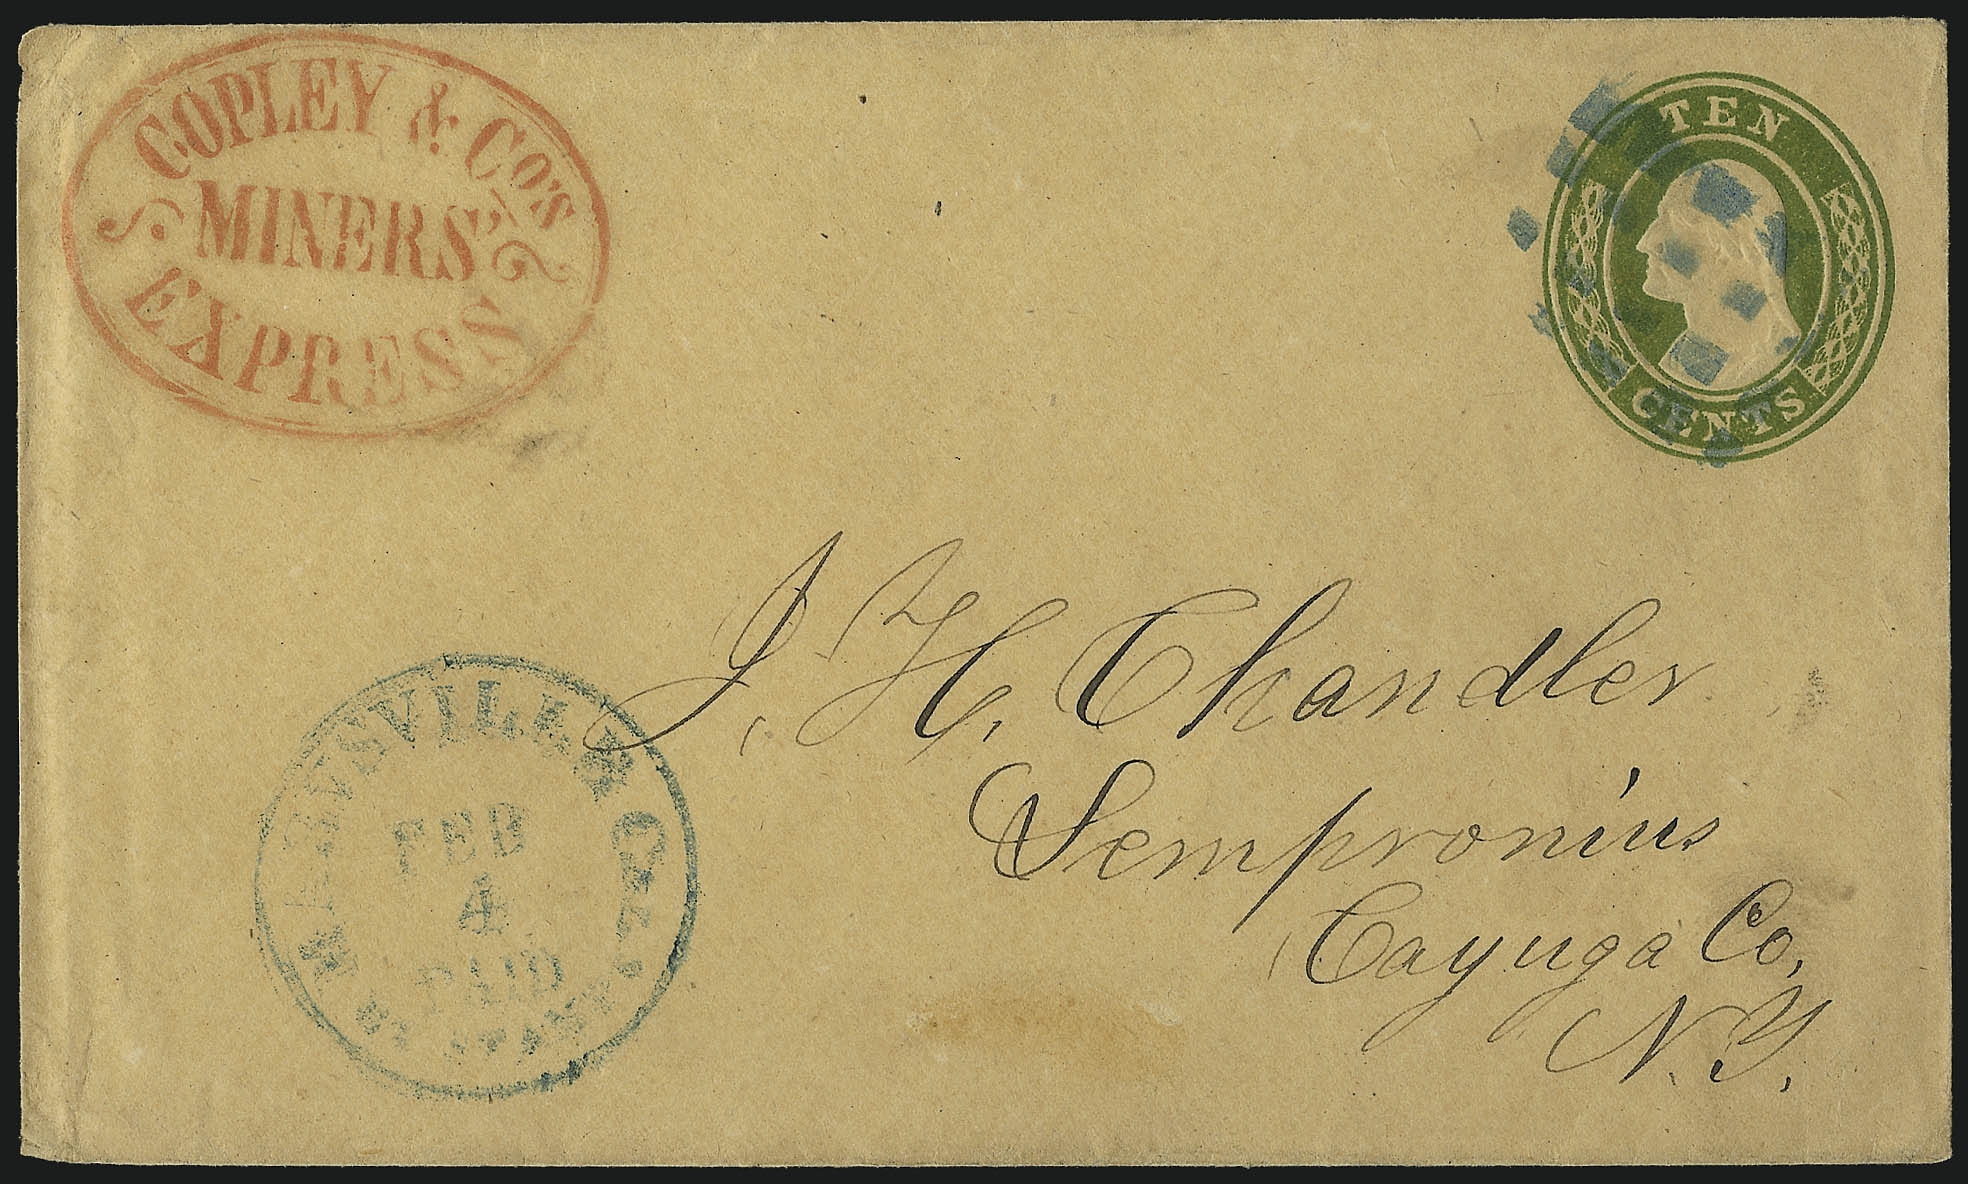 COPLEY & Co's
MINERS'
EXPRESS
TEN
CENTS
J. H. Chandler
Sempronius
Cayuga Co,
N. Y.
MARYSVILLE CAL.
FEB
4
PAID
BY STAMPS